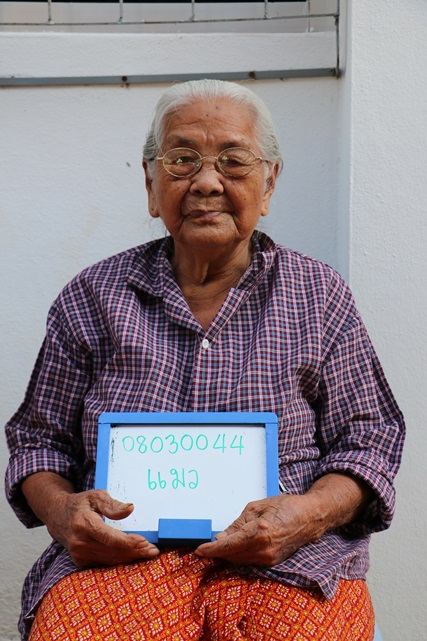 08030044
แมว